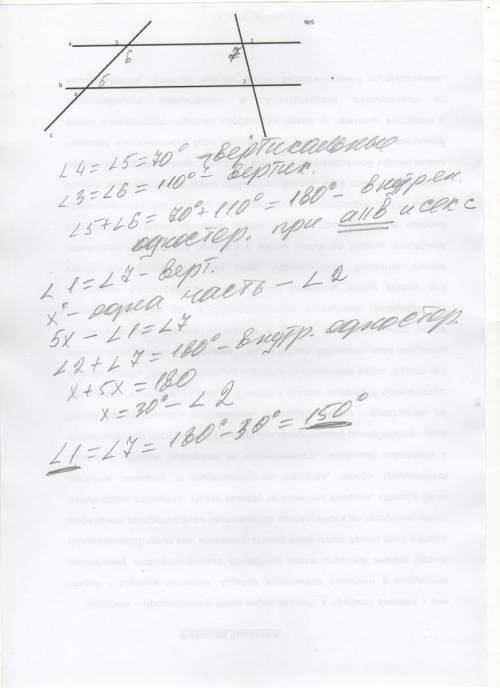 №5
a 3 6 7 1
b 4 5 2
c
∠4=∠5=70° - вертикальные
∠3=∠6=110° - вертик.
∠5+∠6=70°+110°=180° - внутрен.
одностор. при a||в и сек с
∠1=∠7 - верт.
x° - одна часть - ∠2
5x - ∠1=∠7
∠2+∠7=180° - внутр. одностор.
x+5x=180
x=30° - ∠2
∠1=∠7=180°-30°=150°